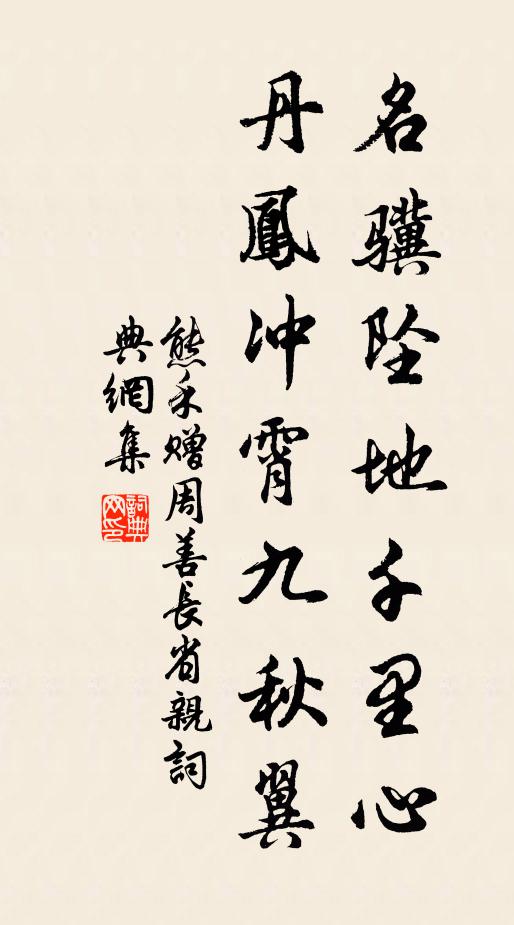 名骥坠地千里心
丹鳳冲霄九秋翼
熊禾赠周善長省親詞
典網集
詞典网印